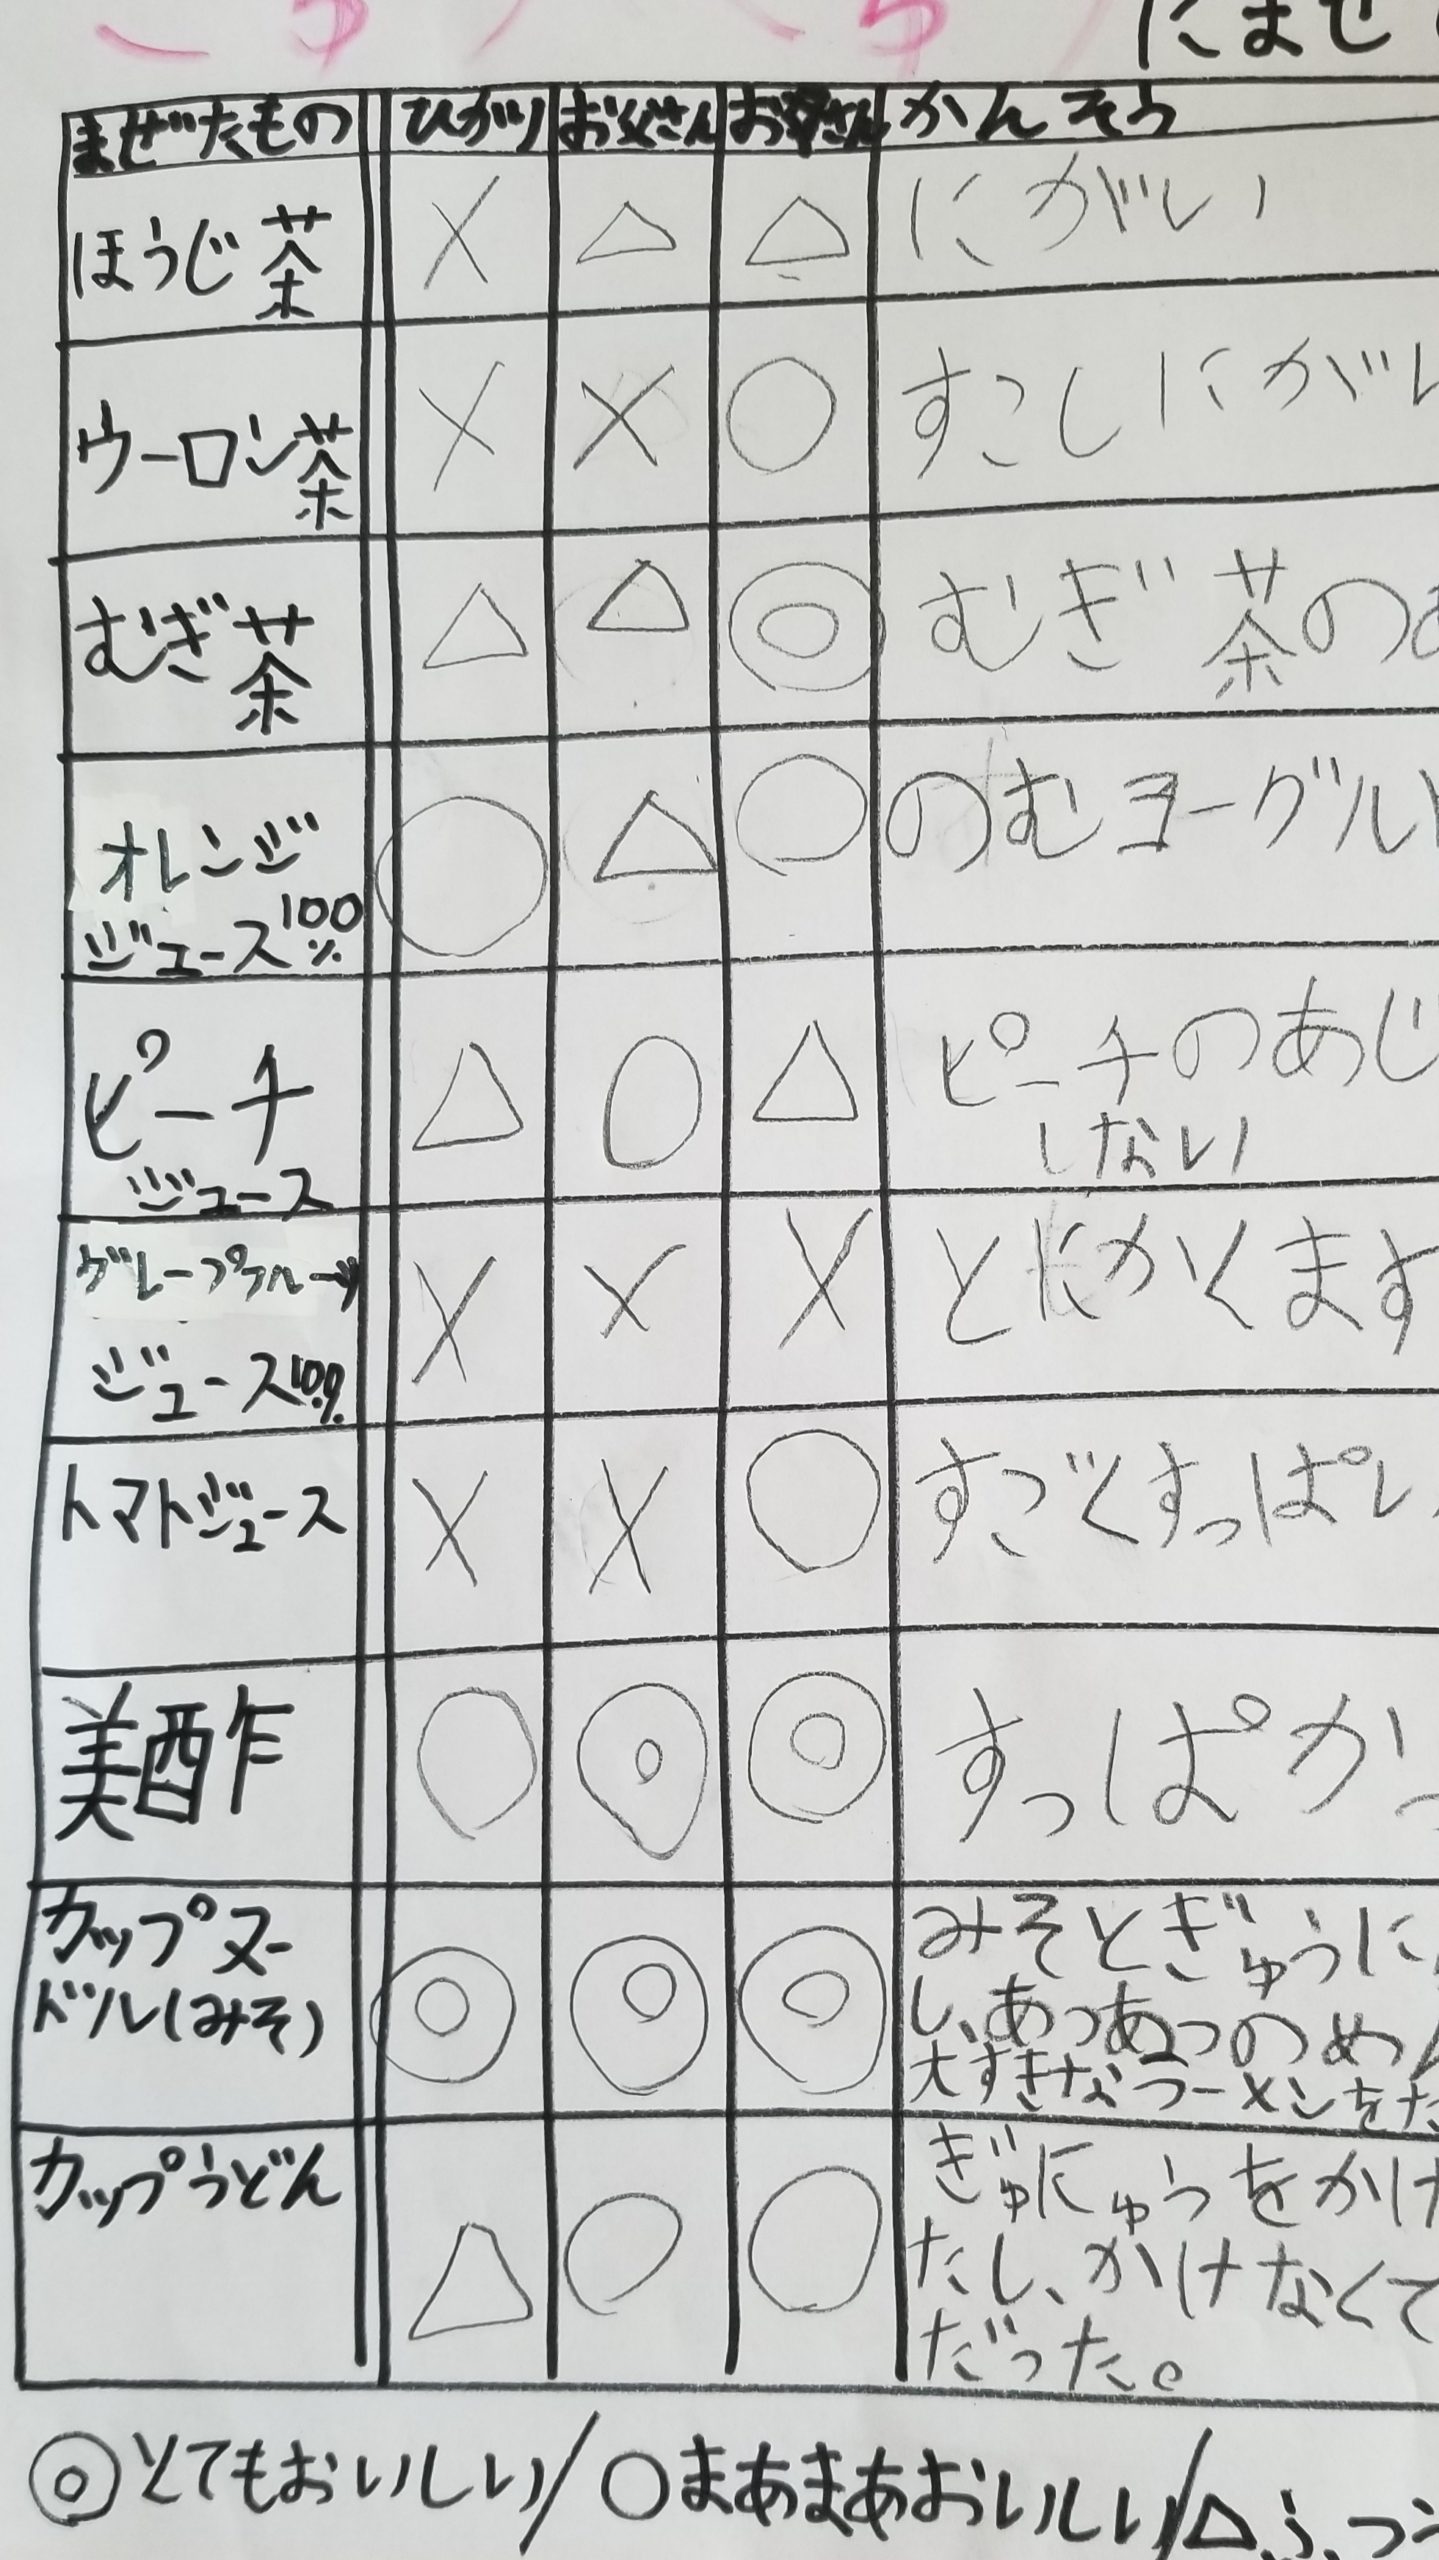 にませ
まぜたもの ひかり お父さん お母さん かんそう
ほうじ茶 × △ △ にがい
ウーロン茶 × × ○ すこしにがい
むぎ茶 △ △ ◎ むぎ茶の
オレンジ ○ △ ○ のむヨーグルト
ジュース100%
ピーチ △ ○ △ ピーチのあじ
ジュース しない
グレープフルーツ × × × とにかくます
ジュース100%
トマトジュース × × ○ すごくすっぱい
美酢 ○ ◎ ◎ すっぱかっ
カップヌー ◎ ◎ ◎ みそとぎゅうに
ドル(みそ) し、あつあつのめん
大すきなラーメンをた
カップうどん △ ○ ○ ぎゅにゅうをかけ
たし、かけなくて
だった。
◎とてもおいしい/○まあまあおいしい/△ふつう